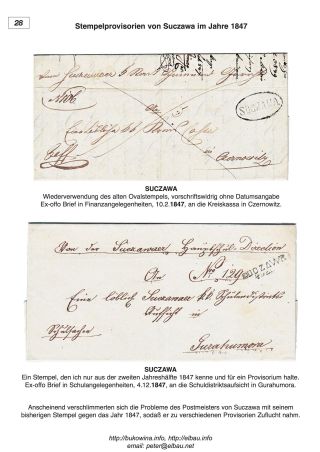 28
Stempelprovisorien von Suczawa im Jahre 1847
SUCZAWA
Czernowitz
SUCZAWA
Wiederverwendung des alten Ovalstempels, vorschriftswidrig ohne Datumsangabe
Ex-offo Brief in Finanzangelegenheiten, 10.2.1847, an die Kreiskassa in Czernowitz.
Von der Suczawaer Hauptschul Direction
An No 129
SUCZAWA
Eine löblich Suczawaer
Aufsicht in
Schulsache
Gurahumora
SUCZAWA
Ein Stempel, den ich nur aus der zweiten Jahreshälfte 1847 kenne und für ein Provisorium halte.
Ex-offo Brief in Schulangelegenheiten, 4.12.1847, an die Schuldistriktsaufsicht in Gurahumora.
Anscheinend verschlimmerten sich die Probleme des Postmeisters von Suczawa mit seinem
bisherigen Stempel gegen das Jahr 1847, sodaß er zu verschiedenen Provisorien Zuflucht nahm.
http://bukowina.info, http://eibau.info
email: peter@eibau.info